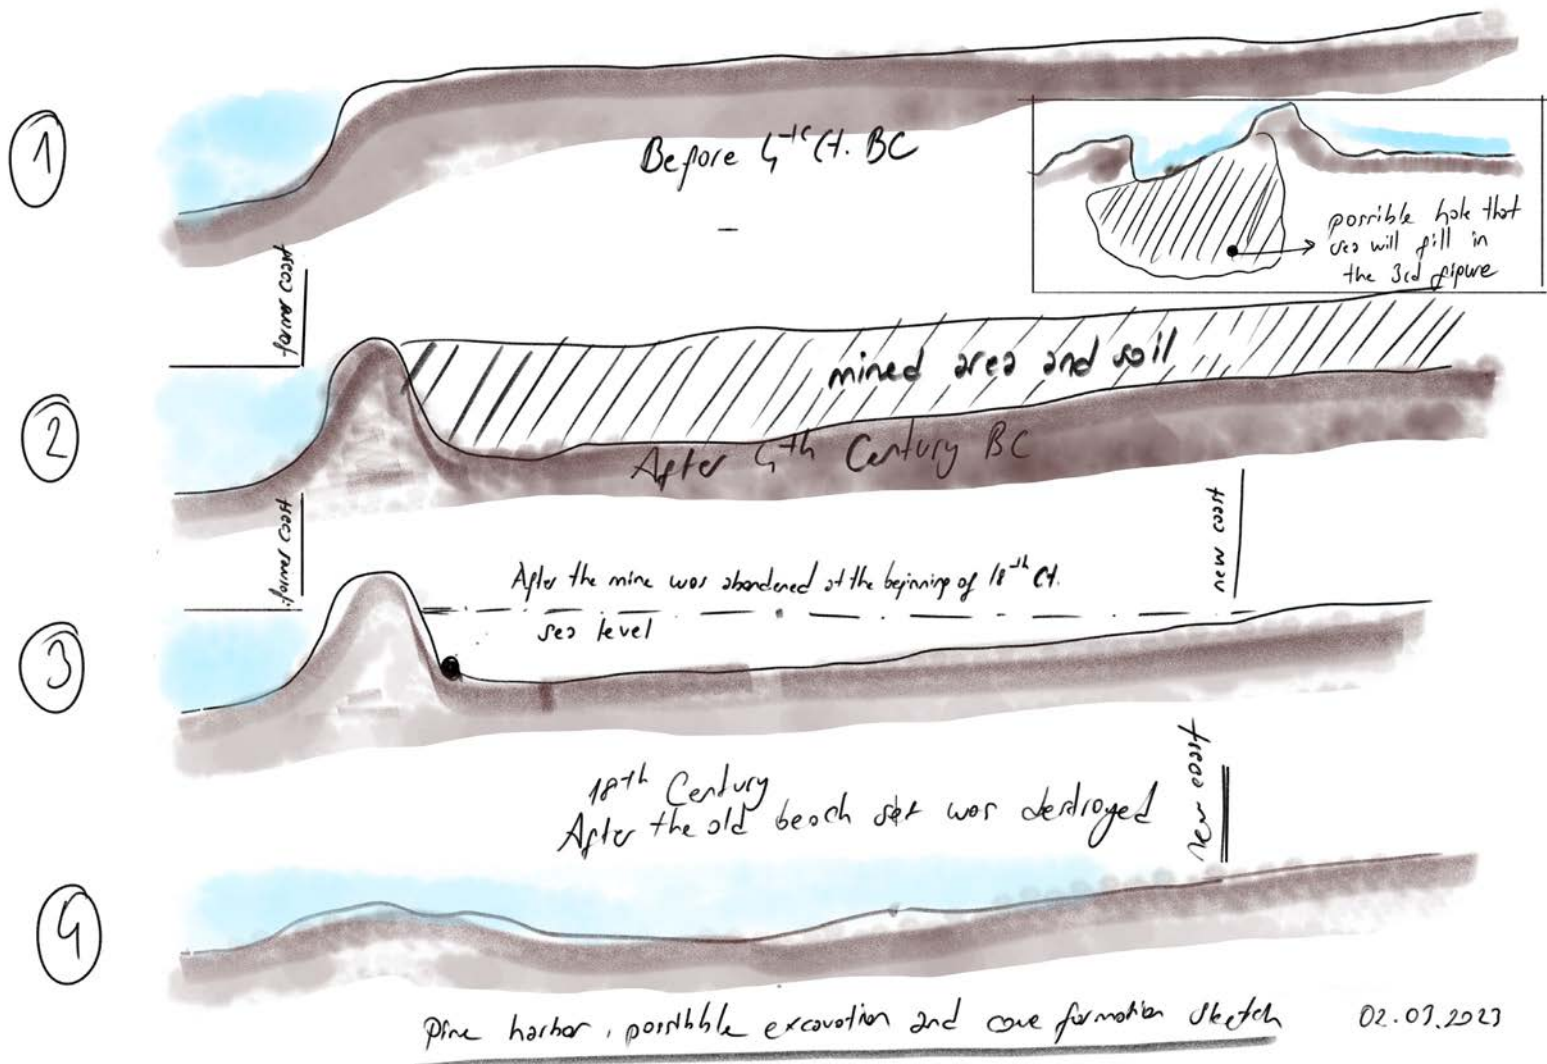 1
Before 4th Ct. BC
possible hole that
sea will fill in
the 3rd figure
former coast
2
mined area and soil
After 4th Century BC
former coast
new coast
3
After the mine was abandened at the beginning of 18th Ct.
sea level
18th Century
After the old beach set was destroyed
new coast
4
Pine harbor, possibble excavation and cove formation sketch
02.03.2023